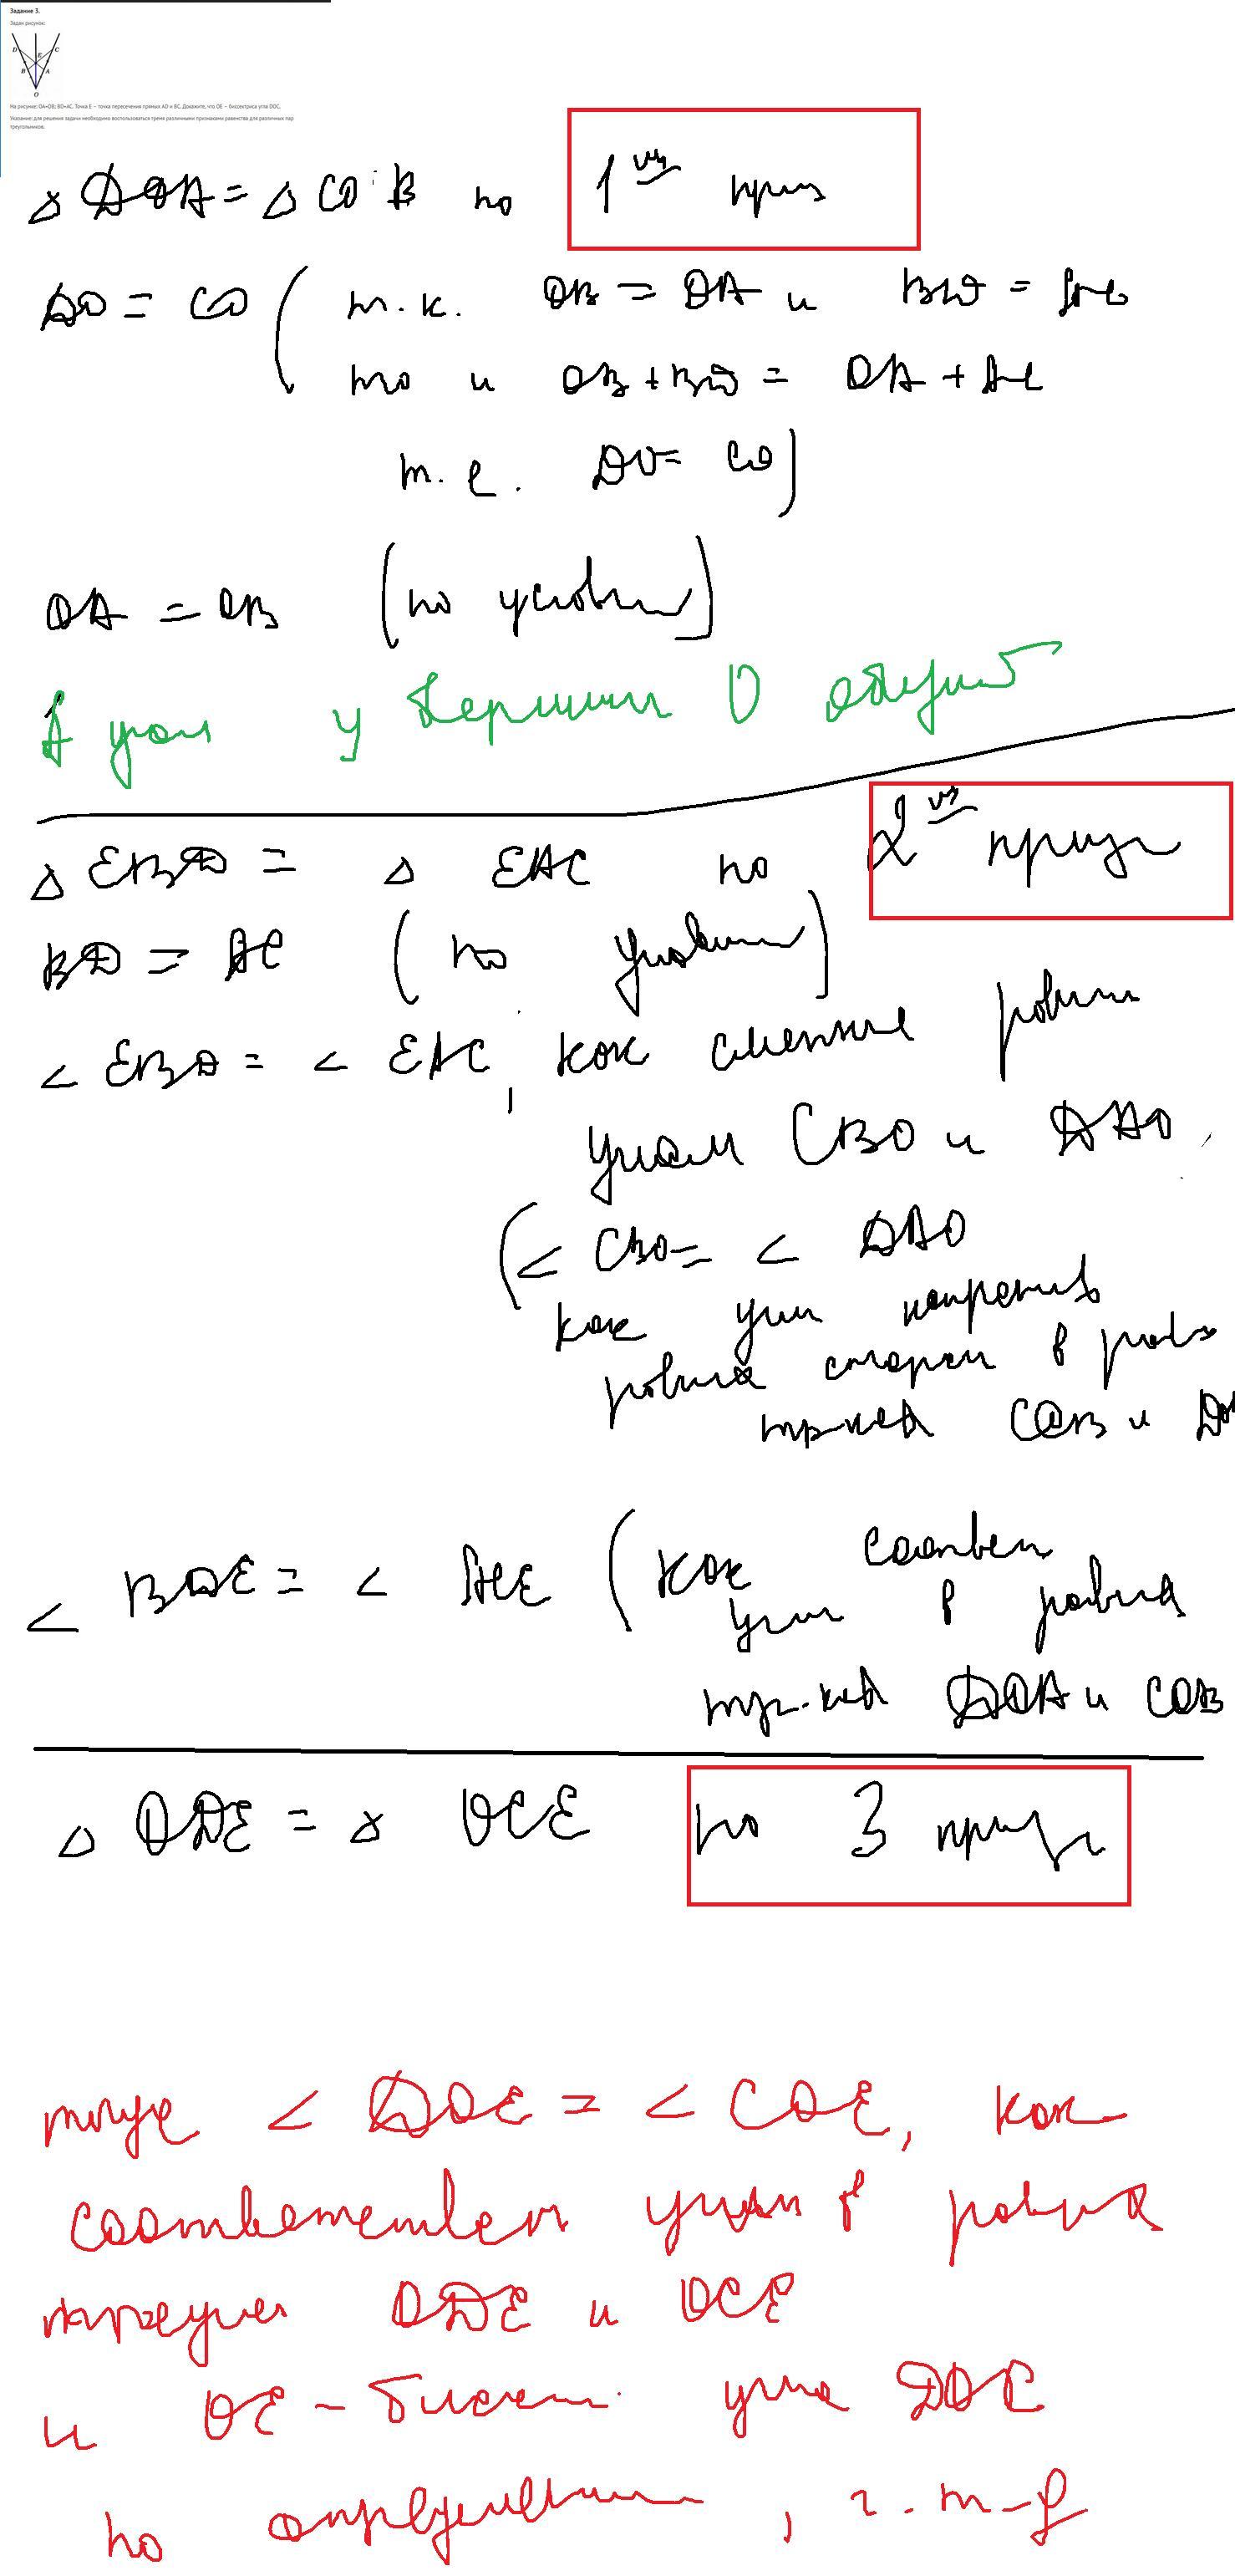 Задание 3.
Задан рисунок:
D E C
B A
O
На рисунке: OA=OB; BD=AC. Точка E – точка пересечения прямых AD и BC. Докажите, что OE – биссектриса угла DOC.
Указание: для решения задачи необходимо воспользоваться тремя различными признаками равенства для различных пар
треугольников.
△ DOA = △ COB по 1му приз
DO = CO ( т.к. OB = OA и BD = AC
то и OB + BD = OA + AC
т.е. DO = CO)
OA = OB (по услови)
А угол у вершин O общий
△ EBD = △ EAC по 2му призн
BD = AC (по услови)
< EBD = < EAC, как смежные
углам CBO и DAO.
(< CBO = < DAO
как угл напротив
сторон в
тр-ков COB и
< BDE = < ACE (как соответ
угл в
тр-ков DOA и COB
△ ODE = △ OCE по 3 призн
< DOE = < COE, как
соответствен в
ODE и OCE
и OE - биссект угла DOC
по определени, ч.т.д